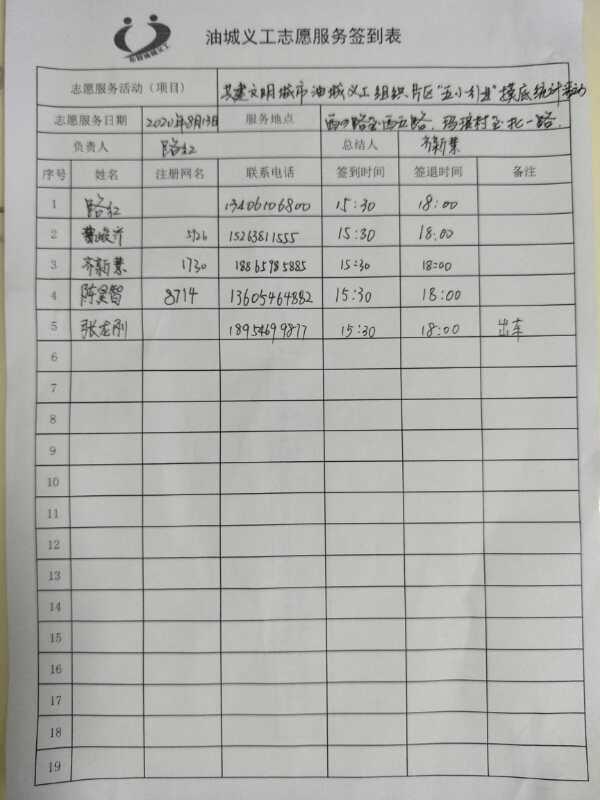 东营油城义工
油城义工志愿服务签到表
志愿服务活动（项目） 共建文明城市油城义工组织片区"五小行业"摸底统计活动
志愿服务日期 2020年8月13日 服务地点 西四路至西五路、玛瑙村至北一路.
负责人 路红 总结人 齐新慧
序号 姓名 注册网名 联系电话 签到时间 签退时间 备注
1 路红 13406106800 15:30 18:00
2 5726 15263811555 15:30 18:00
3 齐新慧 1730 18865985885 15:30 18:00
4 陈景智 8714 13605464882 15:30 18:00
5 张龙刚 18954699877 15:30 18:00 出车
6
7
8
9
10
11
12
13
14
15
16
17
18
19